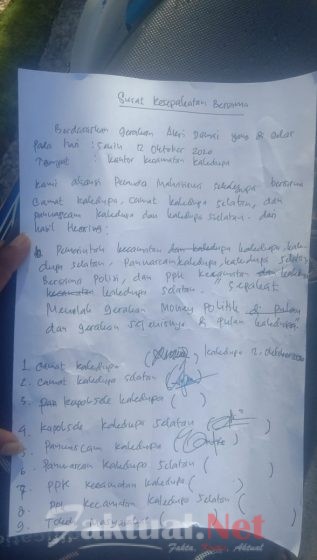 Surat Kesepakatan Bersama
Berdasarkan Gerakan Aksi Damai yang di gelar
Pada hari : Senin 12 Oktober 2020
Tempat : Kantor kecamatan kaledupa
Kami aliansi Pemuda Mahasiswa sekaledupa bersama
Camat kaledupa, camat kaledupa selatan, dan
panwascam kaledupa dan kaledupa selatan. dari
hasil Hearing:
Pemerintah kecamatan kaledupa, kale-
dupa selatan, Panwascam kaledupa, kaledupa selatan
Bersama Polisi, dan PPK kecamatan
kaledupa selatan. "Sepakat
Menolak Gerakan Money Politik di pulau
dan gerakan sejenisnya di pulau kaledupa.
kaledupa 12, Oktober 2020
1. Camat kaledupa ( )
2. Camat kaledupa selatan ( )
3. kapolsek kaledupa ( )
4. Kapolsek kaledupa selatan ( )
5. Panwascam kaledupa ( )
6. Panwascam kaledupa selatan ( )
7. PPK kecamatan kaledupa ( )
8. PPK kecamatan kaledupa selatan (
9.
Faktual.Net
Fakta, Aktual